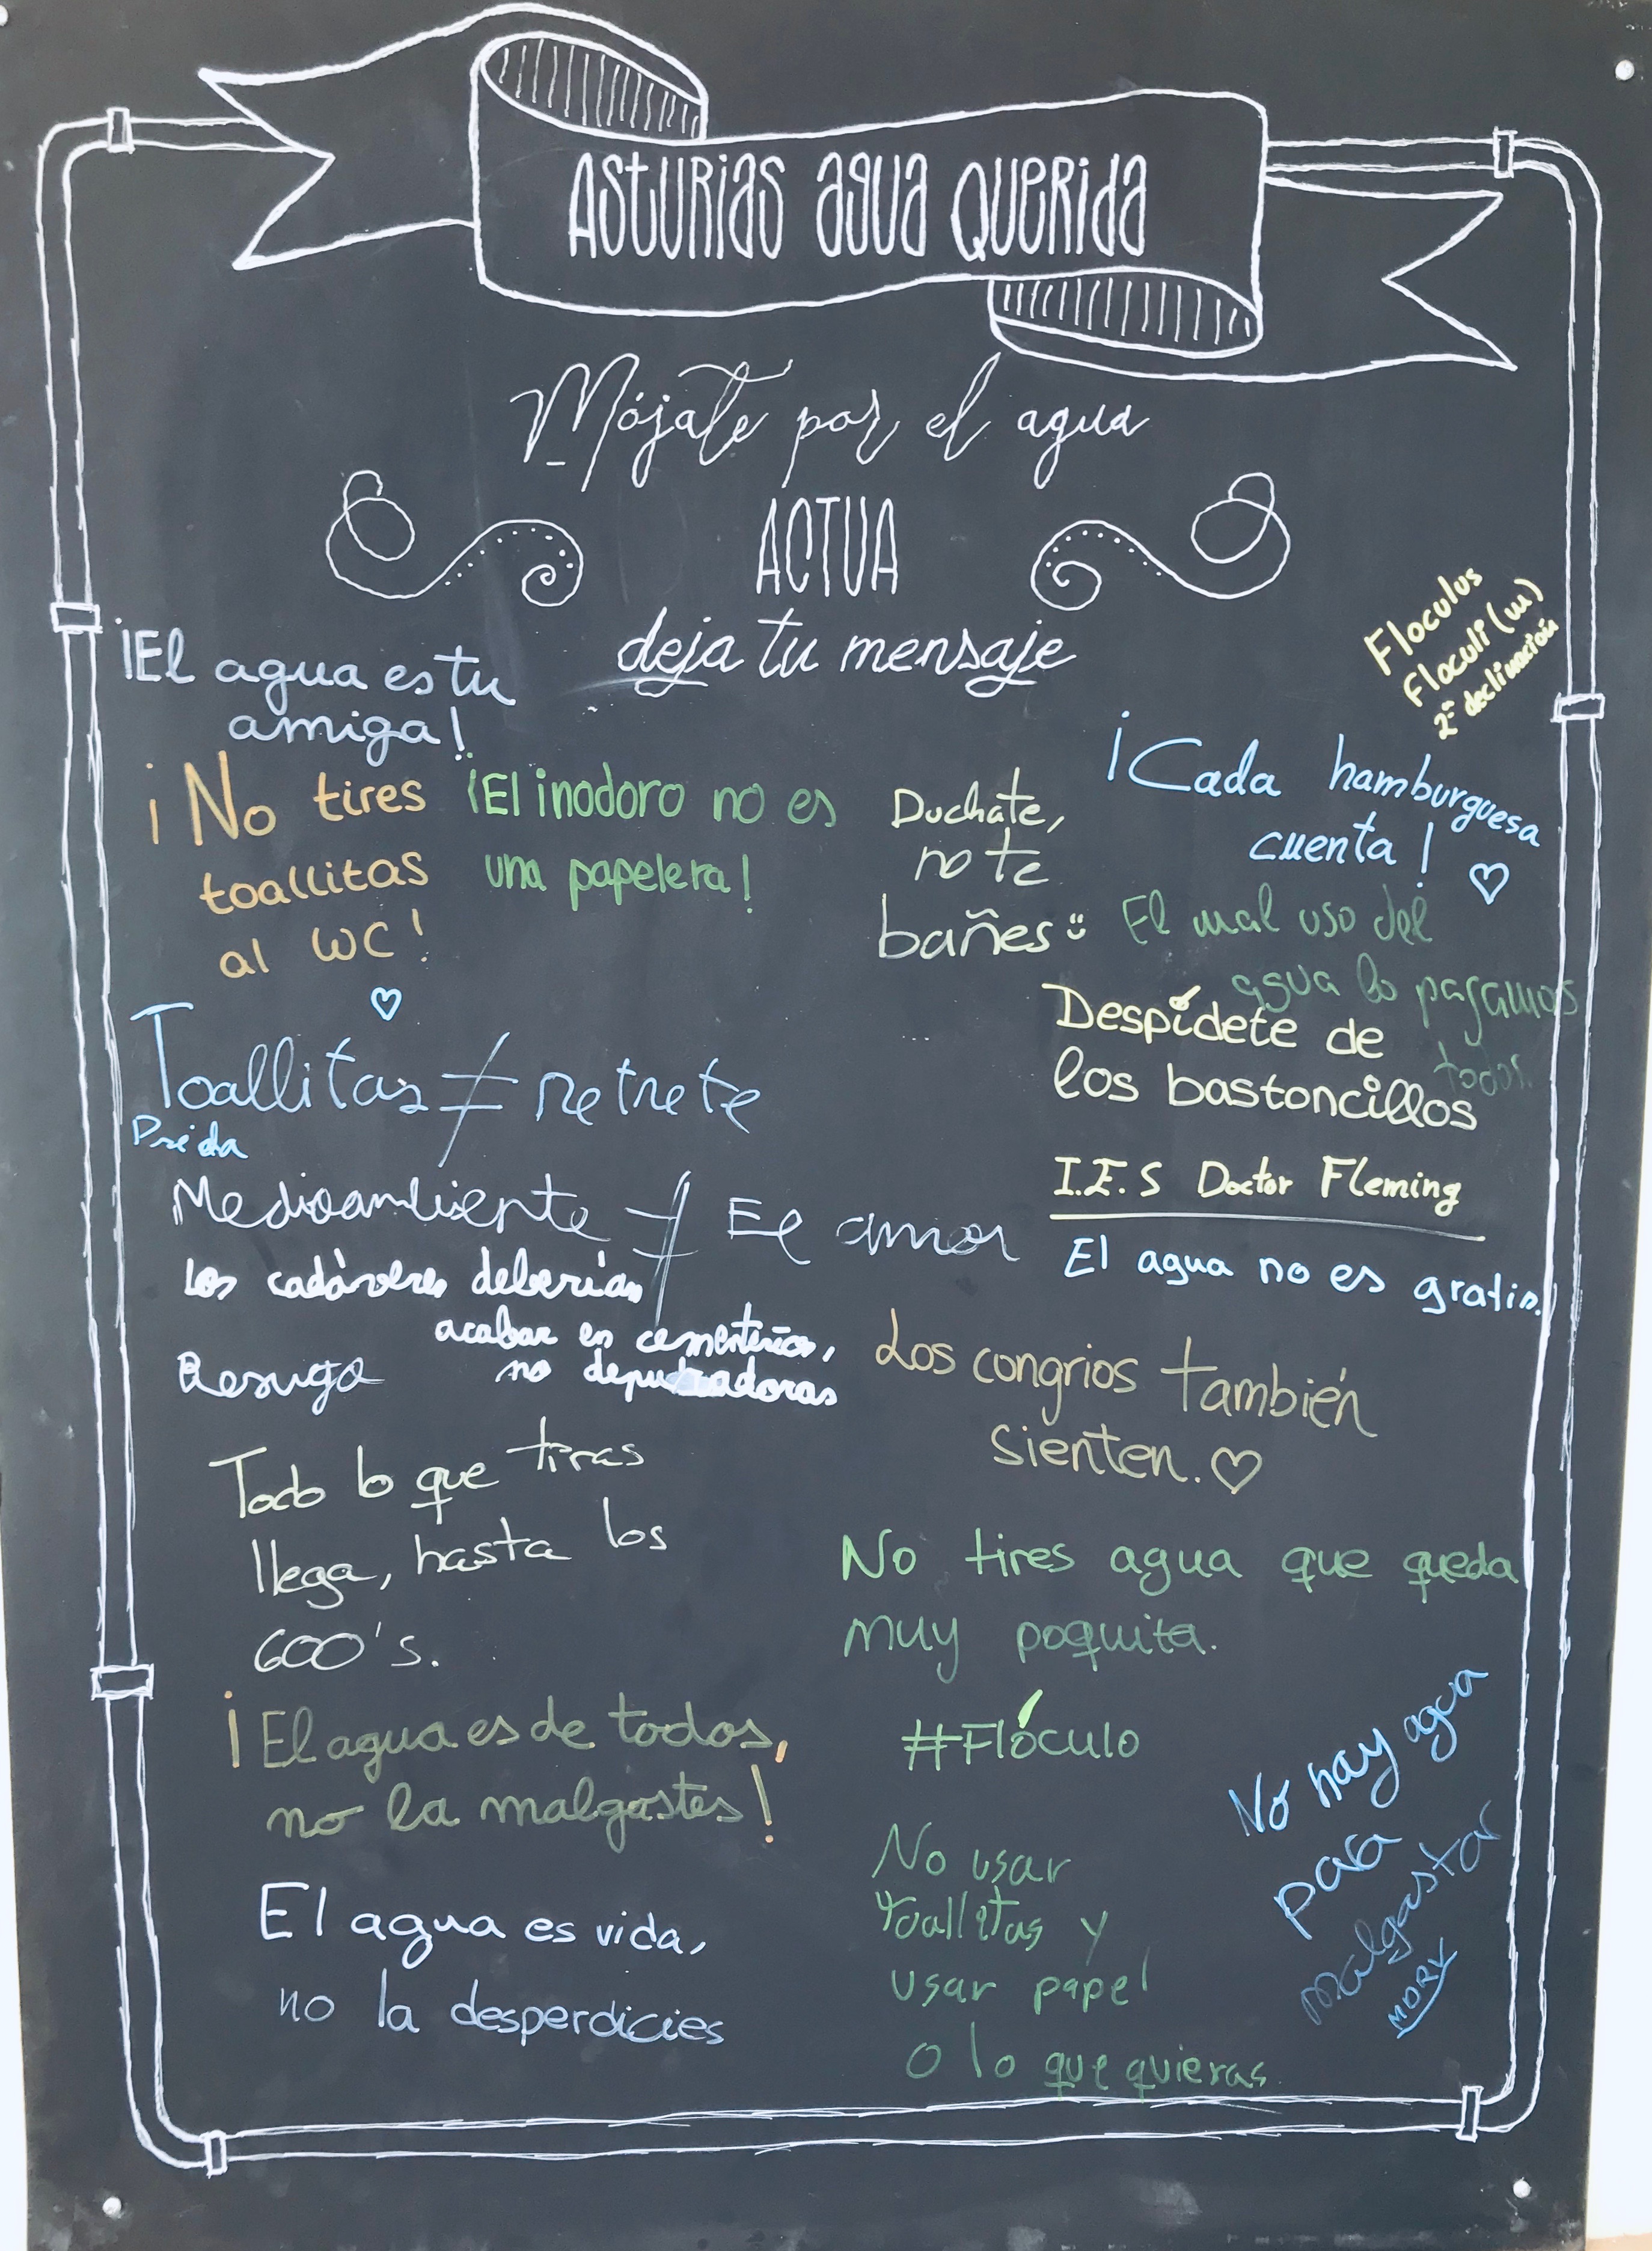 ASTURIAS AGUA QUERIDA
Mójate por el agua
ACTUA
deja tu mensaje
Floculus
Floculi (m)
2ª declinación
¡El agua es tu
amiga!
¡No tires
toallitas
al WC!
¡El inodoro no es
una papelera!
Duchate,
no te
bañes
¡Cada hamburguesa
cuenta!
El mal uso del
agua lo pagamos
todos.
Despídete de
los bastoncillos
I.E.S Doctor Fleming
Toallitas ≠ retrete
Prida
Medioambiente ≠ El amor
Los cadáveres deberían
acabar en cementerios,
no depuradoras
El agua no es gratis.
Los congrios también
sienten.
Todo lo que tiras
llega, hasta los
600's.
No tires agua que queda
muy poquita.
¡El agua es de todos,
no la malgastes!
#Flóculo
No hay agua
para
malgastar
MORY
El agua es vida,
no la desperdicies
No usar
toallitas y
usar papel
o lo que quieras.